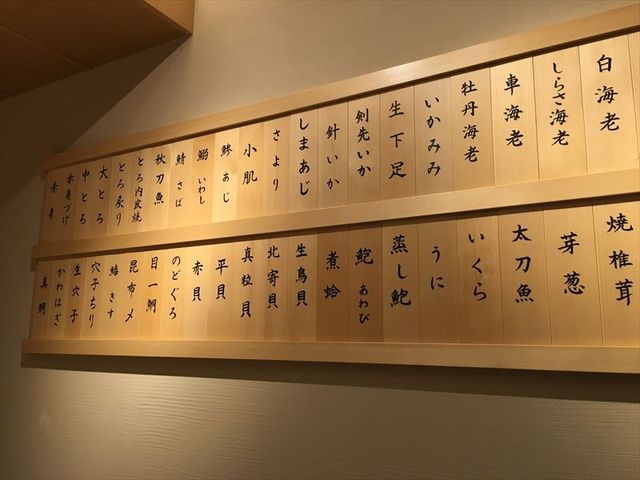 白海老
しらさ海老
車海老
牡丹海老
いかみみ
生下足
剣先いか
針いか
しまあじ
さより
小肌
鯵 あじ
鰯 いわし
鯖 さば
秋刀魚
とろ肉炭焼
とろ炙り
大とろ
中とろ
赤身づけ
赤身
焼椎茸
芽葱
太刀魚
いくら
うに
蒸し鮑
鮑 あわび
煮蛤
生鳥貝
北寄貝
真粒貝
平貝
赤貝
のどぐろ
目一鯛
昆布〆
鱚 きす
穴子ちり
生穴子
かわはぎ
真鯛